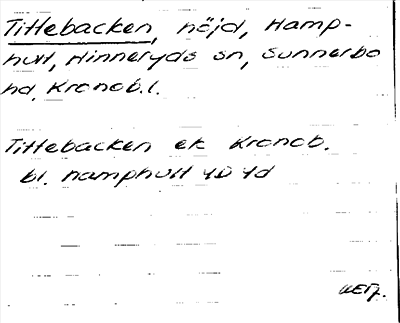 Tittebacken, höjd, Hamp-
hult, Hinneryds sn, Sunnerbo
hd, Kronob. l.
Tittebacken ek Kronob.
bl. Hamphult 4D 4d